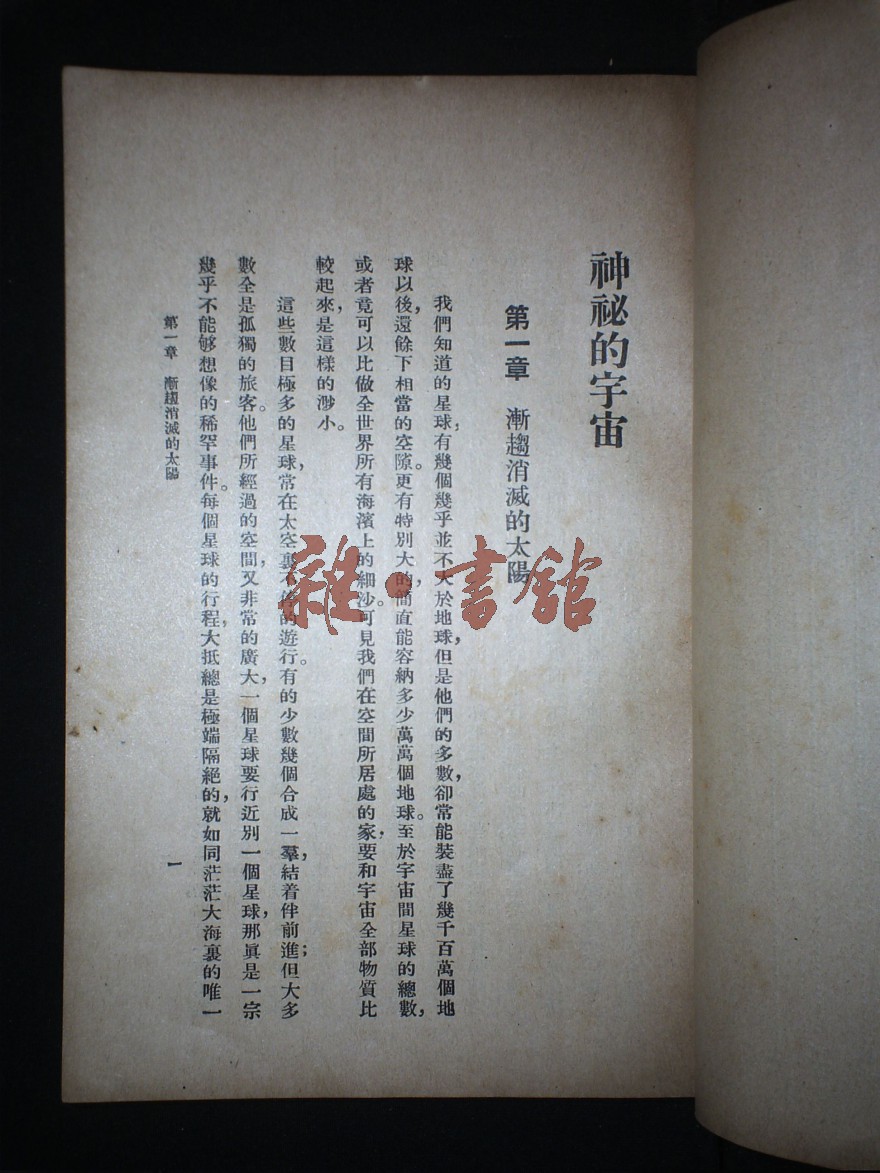 神祕的宇宙
第一章　漸趨消滅的太陽
我們知道的星球，有幾個幾乎並不大於地球，但是他們的多數，卻常能裝盡了幾千百萬個地
球以後，還餘下相當的空隙。更有特別大的，簡直能容納多少萬萬個地球。至於宇宙間星球的總數，
或者竟可以比做全世界所有海濱上的細沙。可見我們在空間所居處的家，要和宇宙全部物質比
較起來，是這樣的渺小。
這些數目極多的星球，常在太空裏不停的遊行。有的少數幾個合成一羣，結着伴前進；但大多
數全是孤獨的旅客。他們所經過的空間，又非常的廣大，一個星球要行近別一個星球，那眞是一宗
幾乎不能够想像的稀罕事件。每個星球的行程，大抵總是極端隔絕的，就如同茫茫大海裏的唯一
第一章　漸趨消滅的太陽
一
雜·書館